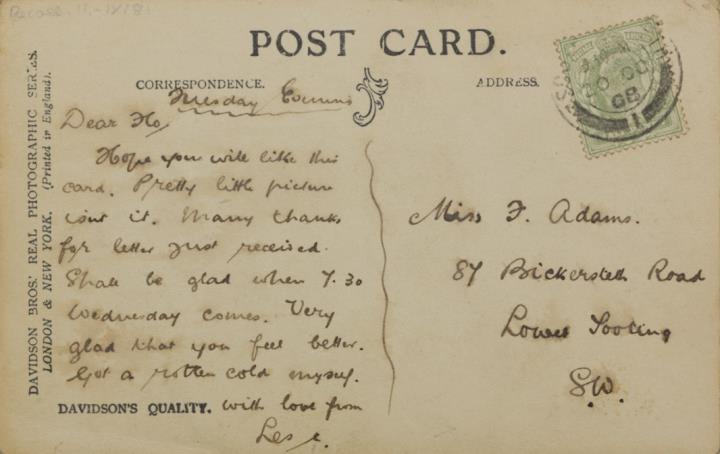 POST CARD.
CORRESPONDENCE.
ADDRESS.
DAVIDSON BROS.' REAL PHOTOGRAPHIC SERIES.
LONDON & NEW YORK. (Printed in England).
Tuesday Evening
Dear Flo,
Hope you will like this
card. Pretty little picture
isnt it. Many thanks
for letter just received.
Shall be glad when 7.30
Wednesday comes. Very
glad that you feel better.
Got a rotten cold myself.
DAVIDSON'S QUALITY. With love from
Les
Miss F. Adams.
87 Bickersteth Road
Lower Tooting
S.W.
08